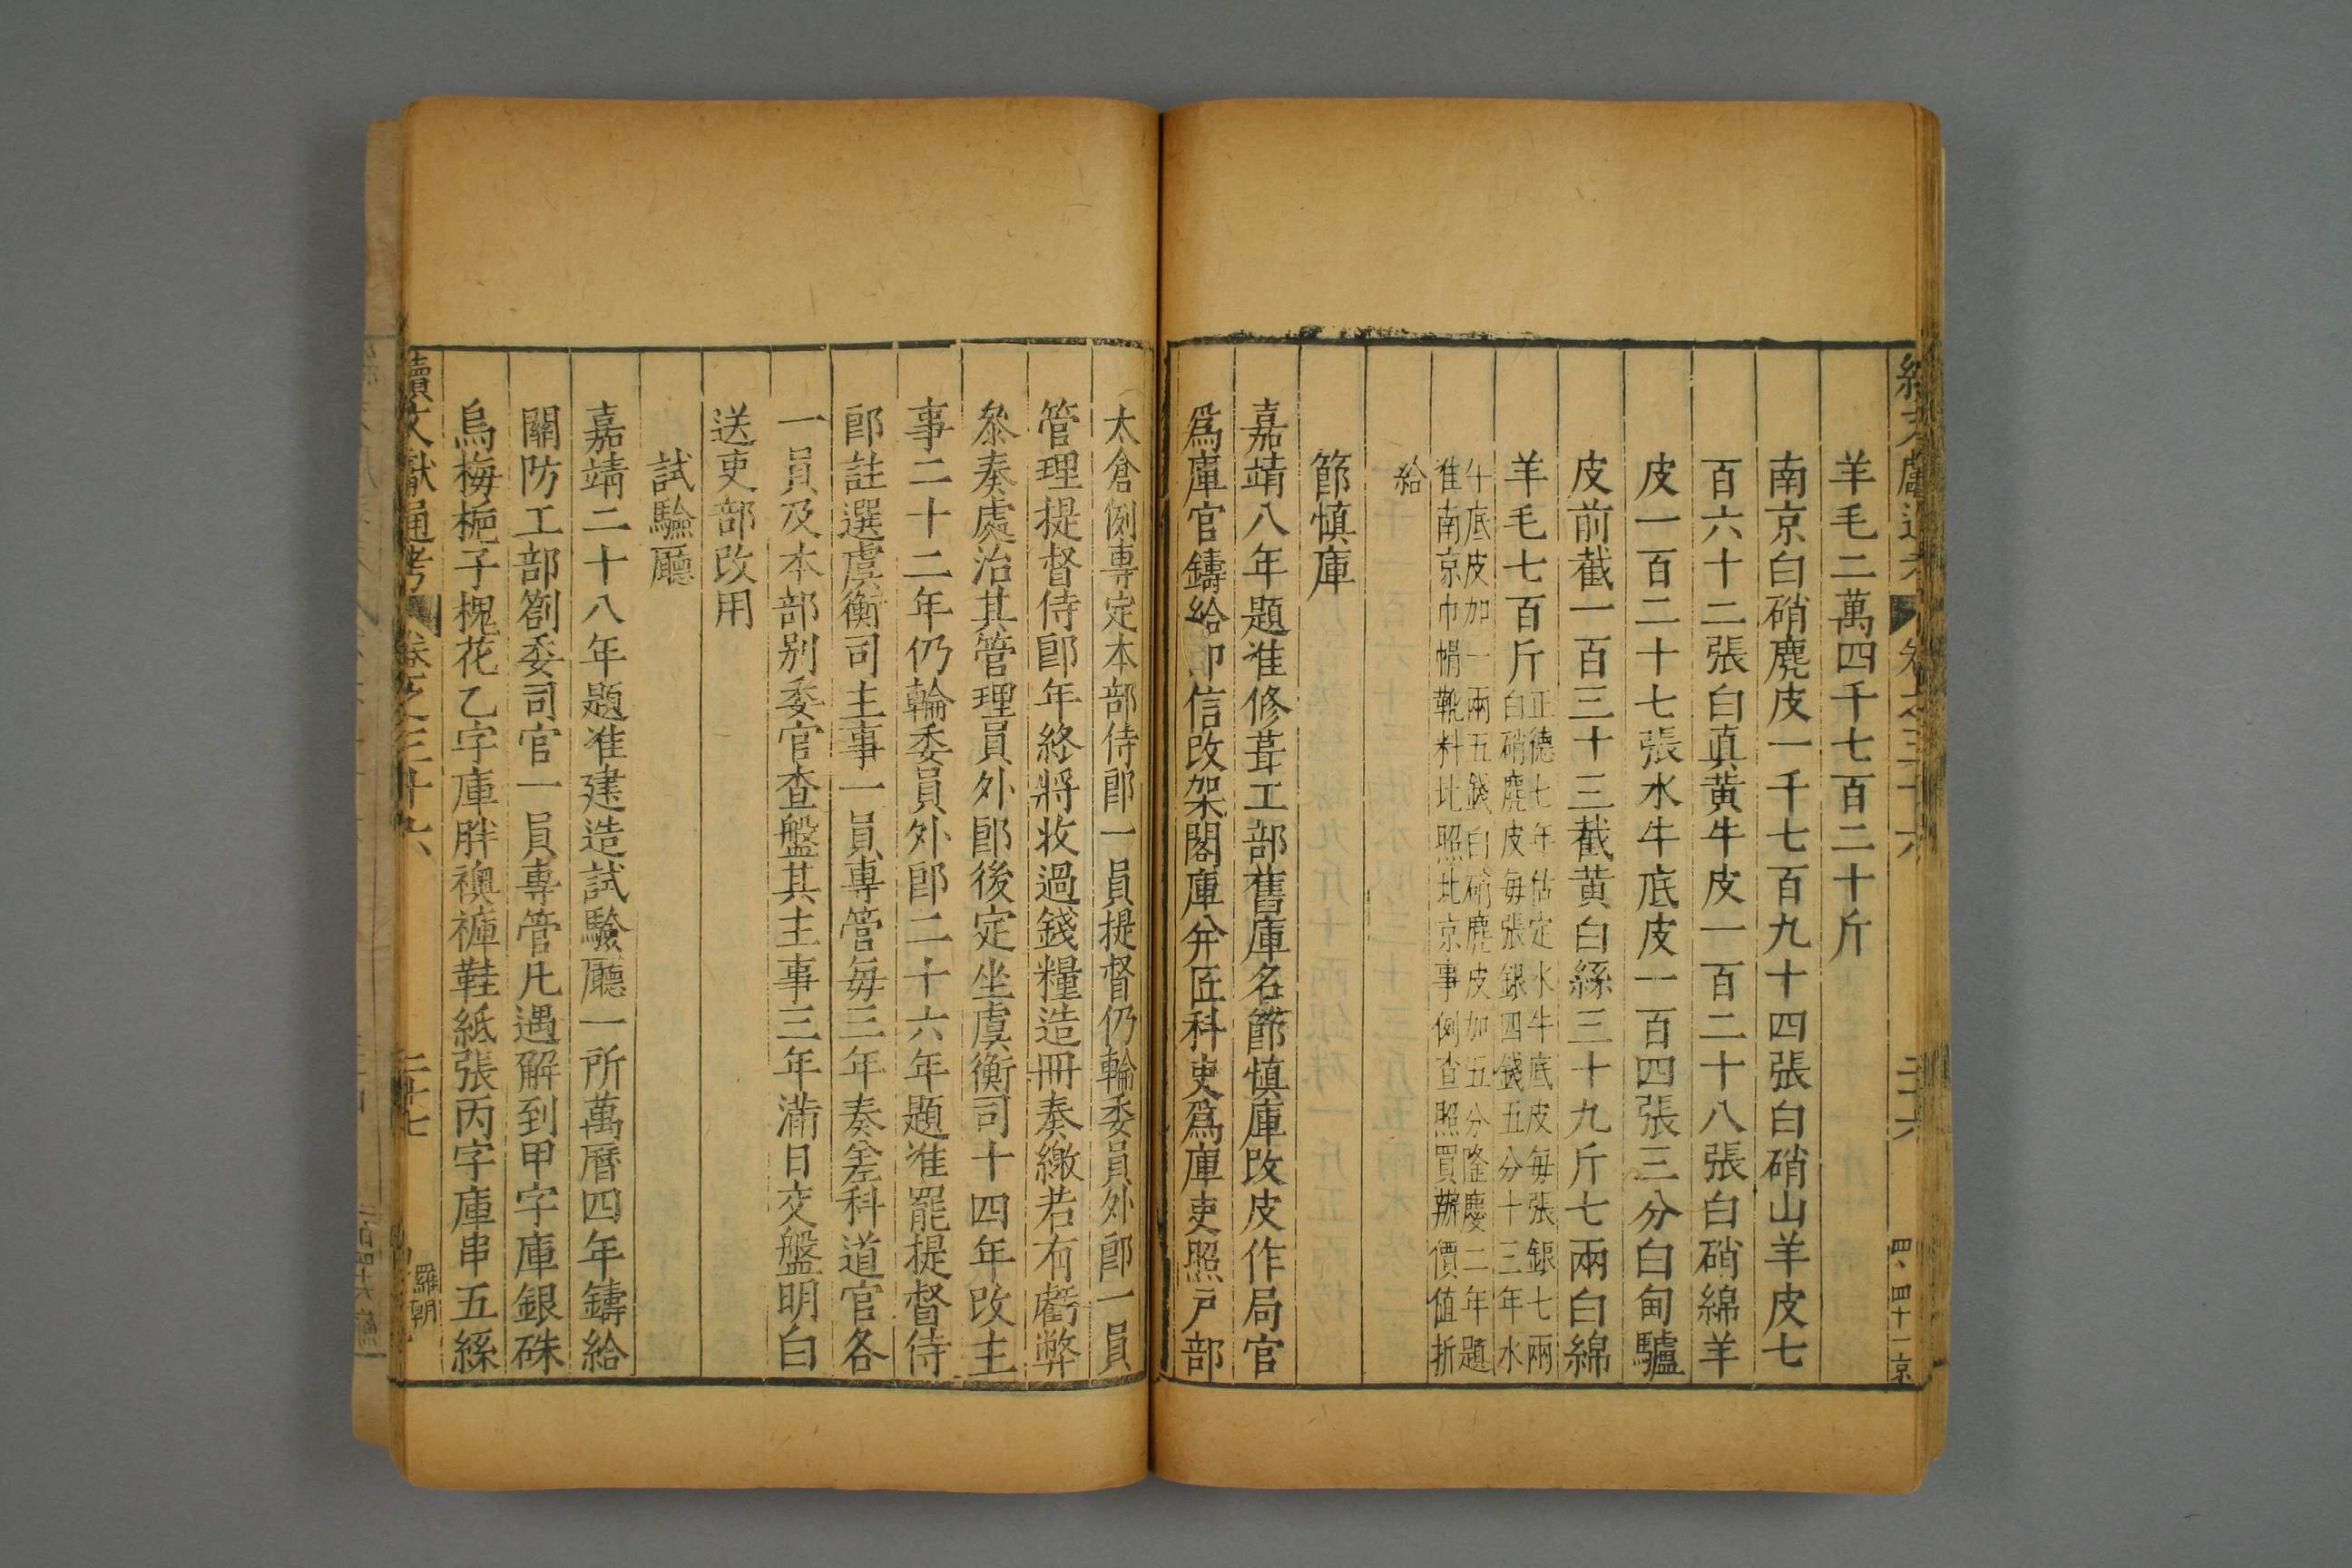 羊毛二萬四千七百二十斤
南京白硝麂皮一千七百九十四張白硝山羊皮七
百六十二張白真黄牛皮一百二十八張白硝綿羊
皮一百二十七張水牛底皮一百四張三分白甸驢
皮前截一百三十三截黄白絲三十九斤七兩白綿
羊毛七百斤
正德七年估定水牛底皮每張銀七兩
白硝麂皮每張銀四錢五分十三年水
牛底皮加一兩五錢白硝麂皮加五分隆慶二年題
准南京巾帽靴料比照北京事例查照買辦價值折
給
節慎庫
嘉靖八年題准修葺工部舊庫名節慎庫改皮作局官
爲庫官鑄給印信改架閣庫分匠科吏爲庫吏照戸部
太倉例專定本部侍郎一員提督仍輪委員外郎一員
管理提督侍郎年終將收過錢糧造冊奏繳若有虧弊
叅奏處治其管理員外郎後定坐虞衡司十四年改主
事二十二年仍輪委員外郎二十六年題准罷提督侍
郎註選虞衡司主事一員專管每三年奏差科道官各
一員及本部别委官查盤其主事三年滿日交盤明白
送吏部改用
試驗廳
嘉靖二十八年題准建造試驗廳一所萬曆四年鑄給
關防工部劄委司官一員專管凡遇解到甲字庫銀硃
烏梅梔子槐花乙字庫胖襖褲鞋紙張丙字庫串五絲
續文獻通考 卷之三十六 二十七
羅朝